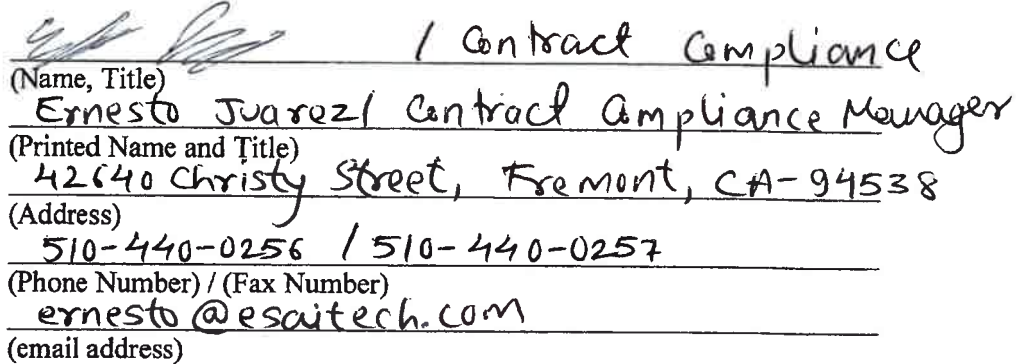 / Contract Compliance
(Name, Title)
Ernesto Juarez/ Contract Compliance Manager
(Printed Name and Title)
42640 Christy Street, Fremont, CA-94538
(Address)
510-440-0256 / 510-440-0257
(Phone Number) / (Fax Number)
ernesto@esaitech.com
(email address)